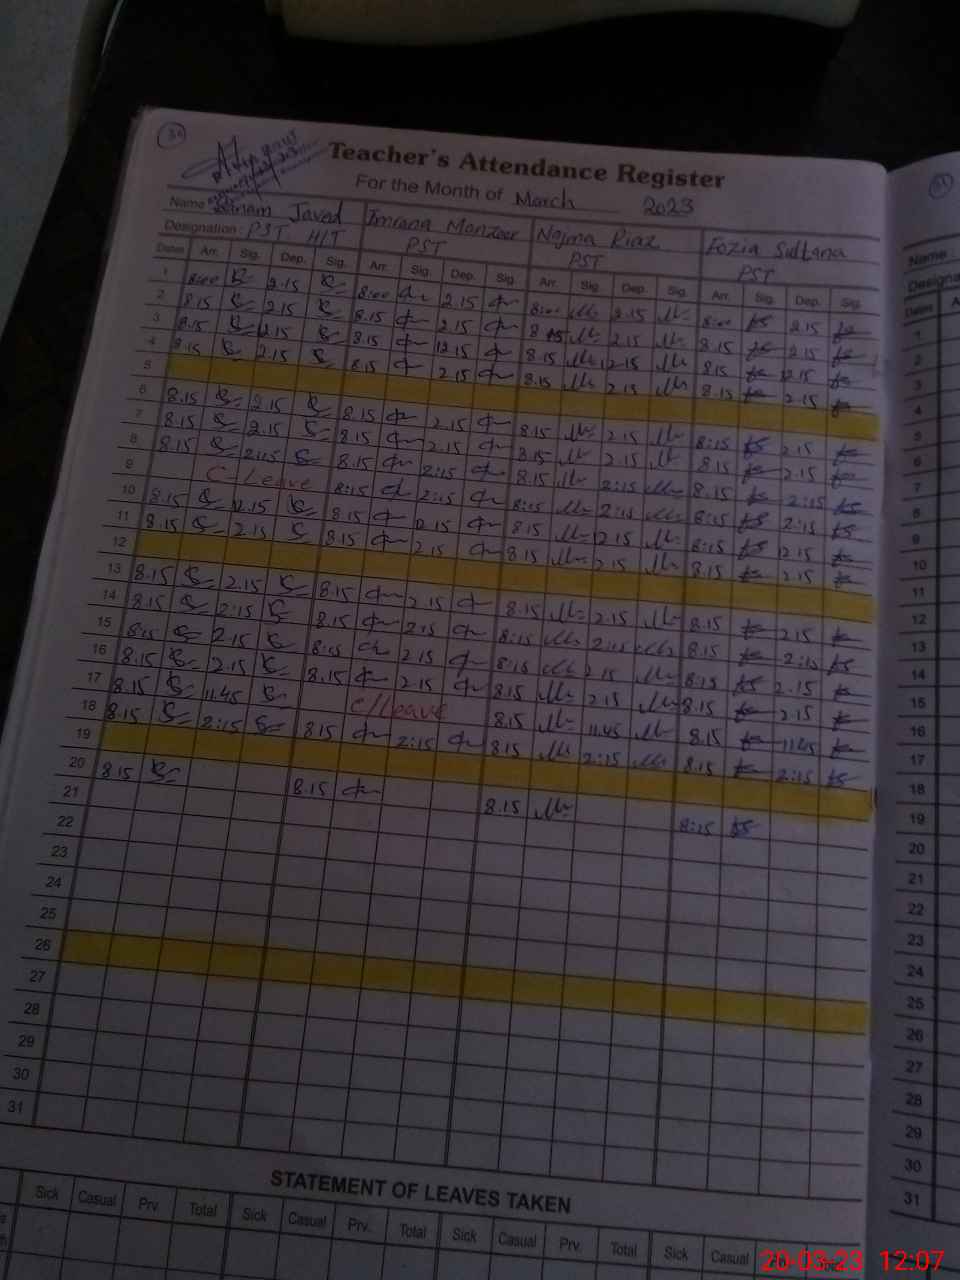 34
Teacher's Attendance Register
For the Month of March 2023
Name Sanam Javed Imrana Manzoor Najma Riaz Fozia Sultana
Designation: PST H/T PST PST PST
Dates Arr. Sig. Dep. Sig. Arr. Sig. Dep. Sig. Arr. Sig. Dep. Sig. Arr. Sig. Dep. Sig.
1 8:00 2.15 8:00 2.15 8:00 2.15 8:00 2.15
2 8.15 2.15 8.15 2.15 8.15 2.15 8.15 2.15
3 8.15 12.15 8.15 12.15 8.15 12.15 8.15 12.15
4 8.15 2.15 8.15 2.15 8.15 2.15 8.15 2.15
5
6 8.15 2.15 8.15 2.15 8.15 2.15 8:15 2.15
7 8.15 2.15 8.15 2.15 8.15 2.15 8.15 2.15
8 8.15 2:15 8.15 2:15 8.15 2:15 8.15 2:15
9 C-Leave 8:15 2:15 8:15 2:15 8:15 2:15
10 8.15 12.15 8.15 12.15 8.15 12.15 8:15 12.15
11 8.15 2.15 8.15 2.15 8.15 2.15 8.15 2.15
12
13 8.15 2.15 8.15 2.15 8.15 2.15 8.15 2.15
14 8.15 2:15 8.15 2:15 8:15 2:15 8.15 2:15
15 8:15 2.15 8:15 2.15 8:15 2.15 8:15 2.15
16 8.15 2.15 8.15 2.15 8.15 2.15 8.15 2.15
17 8.15 11.45 C/Leave 8.15 11.45 8.15 11.45
18 8.15 2:15 8.15 2:15 8.15 2:15 8.15 2:15
19
20 8.15 8.15 8.15 8:15
21
22
23
24
25
26
27
28
29
30
31
STATEMENT OF LEAVES TAKEN
Sick Casual Prv. Total Sick Casual Prv. Total Sick Casual Prv. Total Sick Casual
Name
Designa
Dates
1
2
3
4
5
6
7
8
9
10
11
12
13
14
15
16
17
18
19
20
21
22
23
24
25
26
27
28
29
30
31
20-03-23 12:07